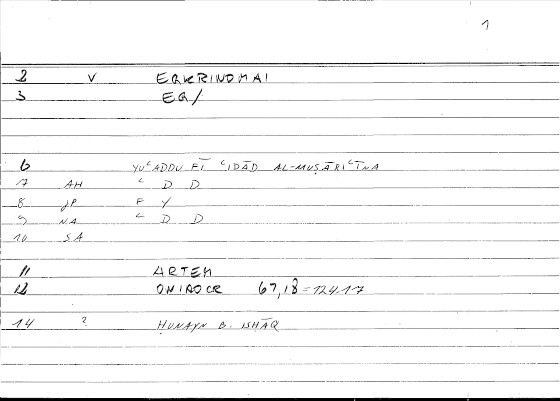 1
2 V EGKRINOMAI
3 EG/
6 YUʿADDU FĪ ʿIDĀD AL-MUṢĀRIʿĪNA
7 AH ʿ D D
8 JP F Y
9 NA ʿ D D
10 SA
11 ARTEM
12 ONIROCR 67,18 = 124.17
14 ? ḤUNAYN B. ISḤĀQ